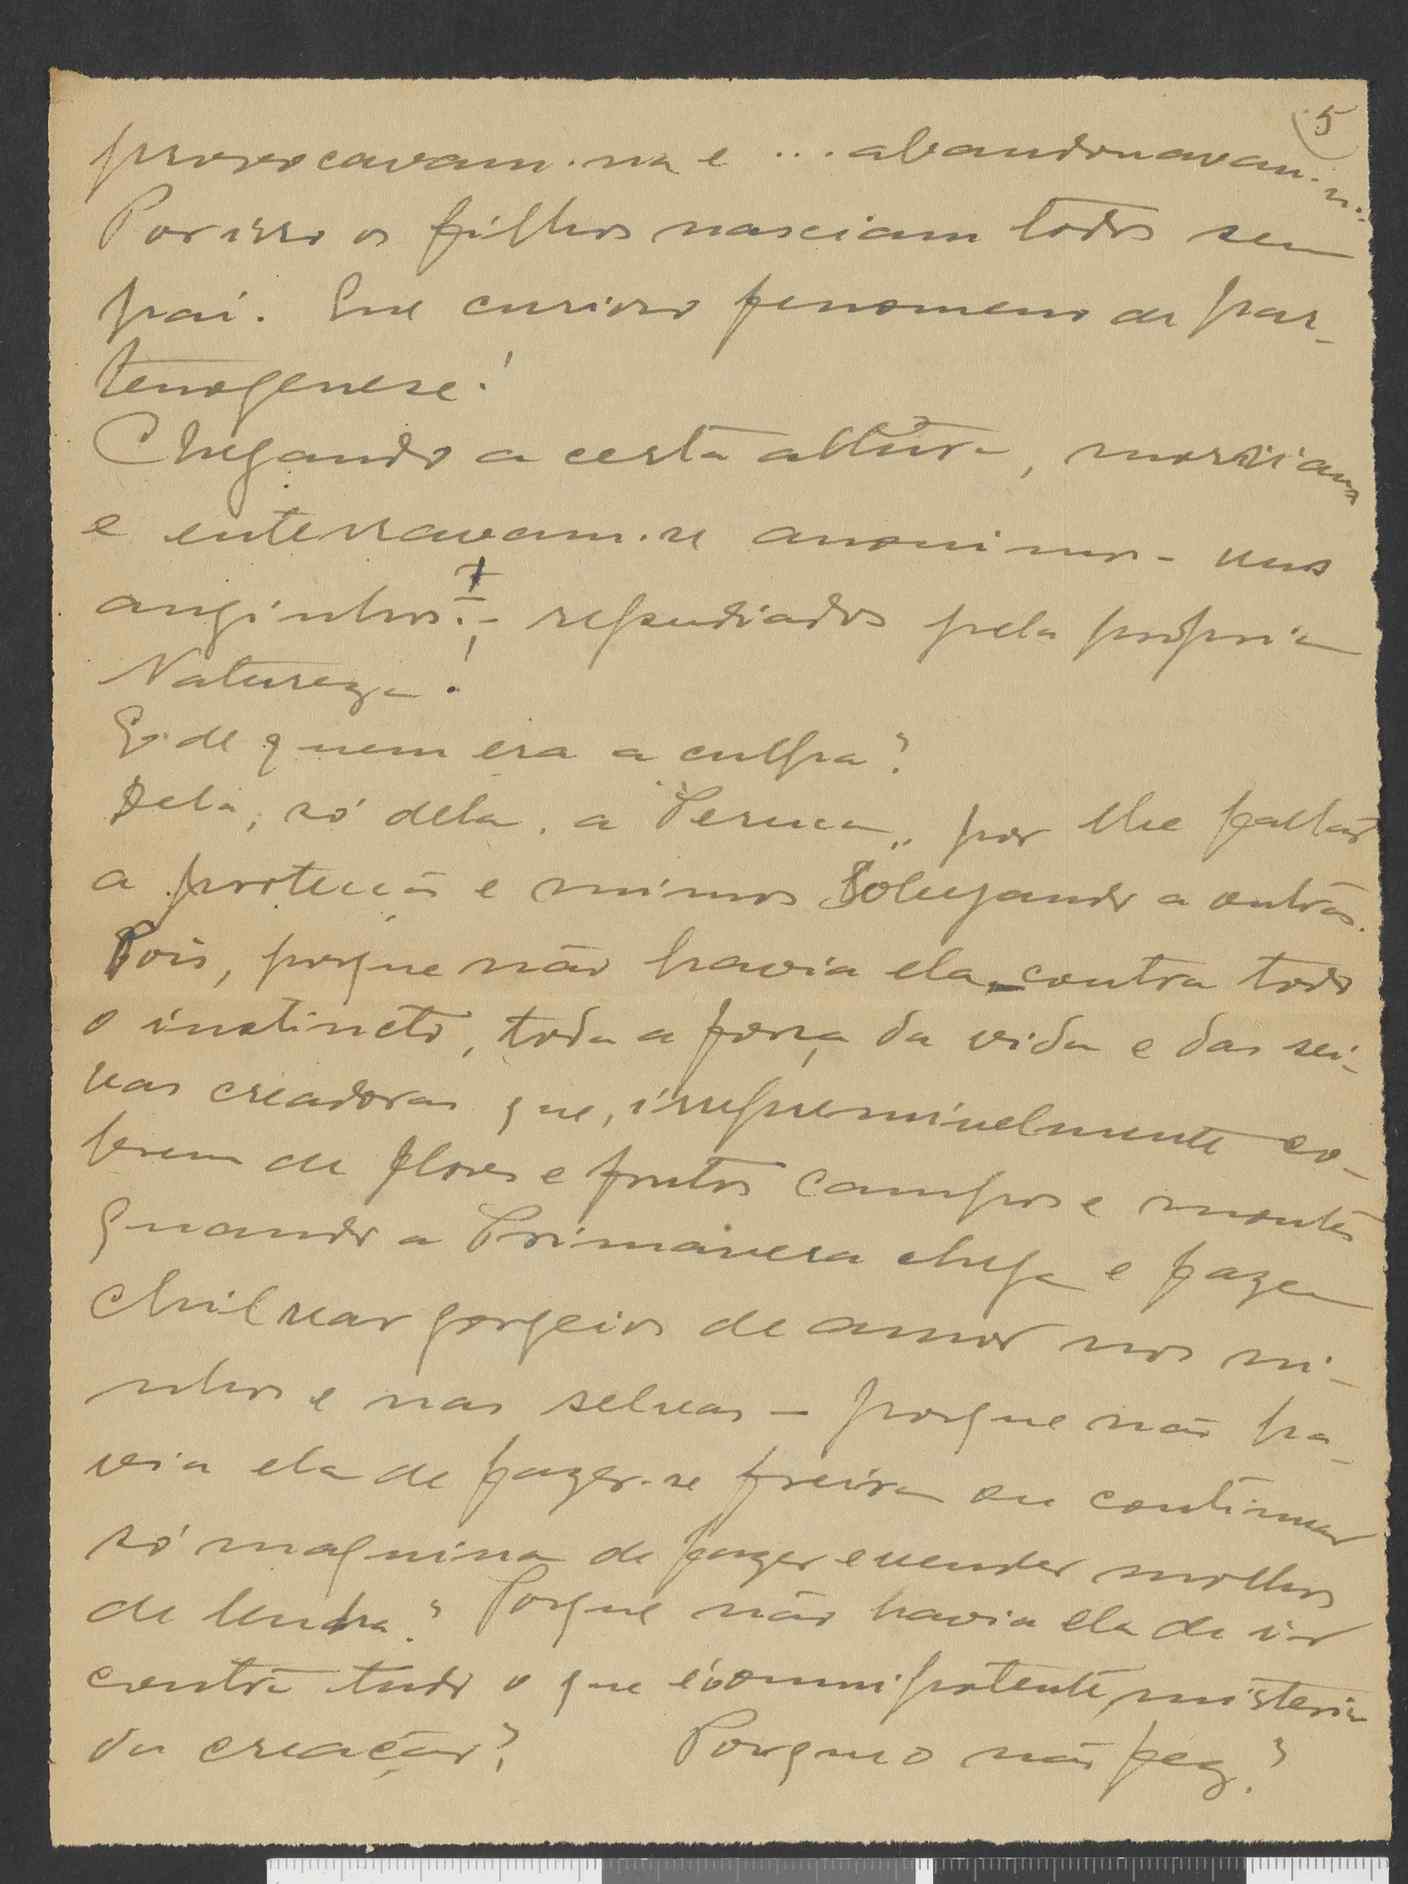 5
provocavam-na e ... abandonavam-na.
Por isso os filhos nasciam todos sem
pai. Que curioso fenomeno de par-
tenogenese!
Chegando a certa altura, morriam
e enterravam-se anonimos - uns
anginhos! - repudiados pela própria
Natureza!
E de quem era a culpa?
Dela, só dela, a "Peruca", por lhe faltar
a protecção e mimos a outras.
Pois, porque não havia ela - contra todo
o instincto, toda a força da vida e das sei-
vas creadoras que, irrepremivelmente co-
brem de flores e frutos campos e montes
quando a Primavera chega e fazem
chilrear gorgeios de amor nos ni-
nhos e nas selvas - porque não ha-
via ela de fazer-se freira ou continuar
só maquina de fazer e vender molhos
de lenha? Porque não havia ela de ir
contra tudo o que é o omnipotente misterio
da creação? Porque o não fez?